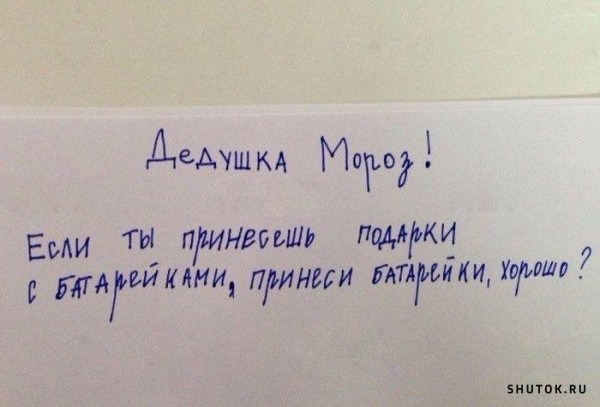 Дедушка Мороз!
Если ты принесешь подарки
с батарейками, принеси батарейки, хорошо?
SHUTOK.RU